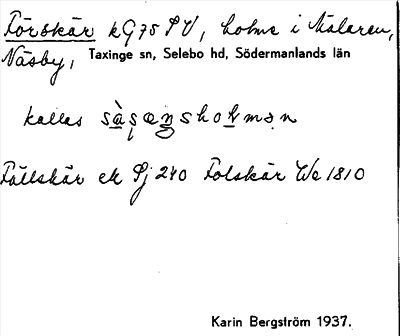 Förskär kG75 SV, holme i Mälaren,
Näsby, Taxinge sn, Selebo hd, Södermanlands län
kallas
Fällskär ek Sj 240 Folskär We 1810
Karin Bergström 1937.